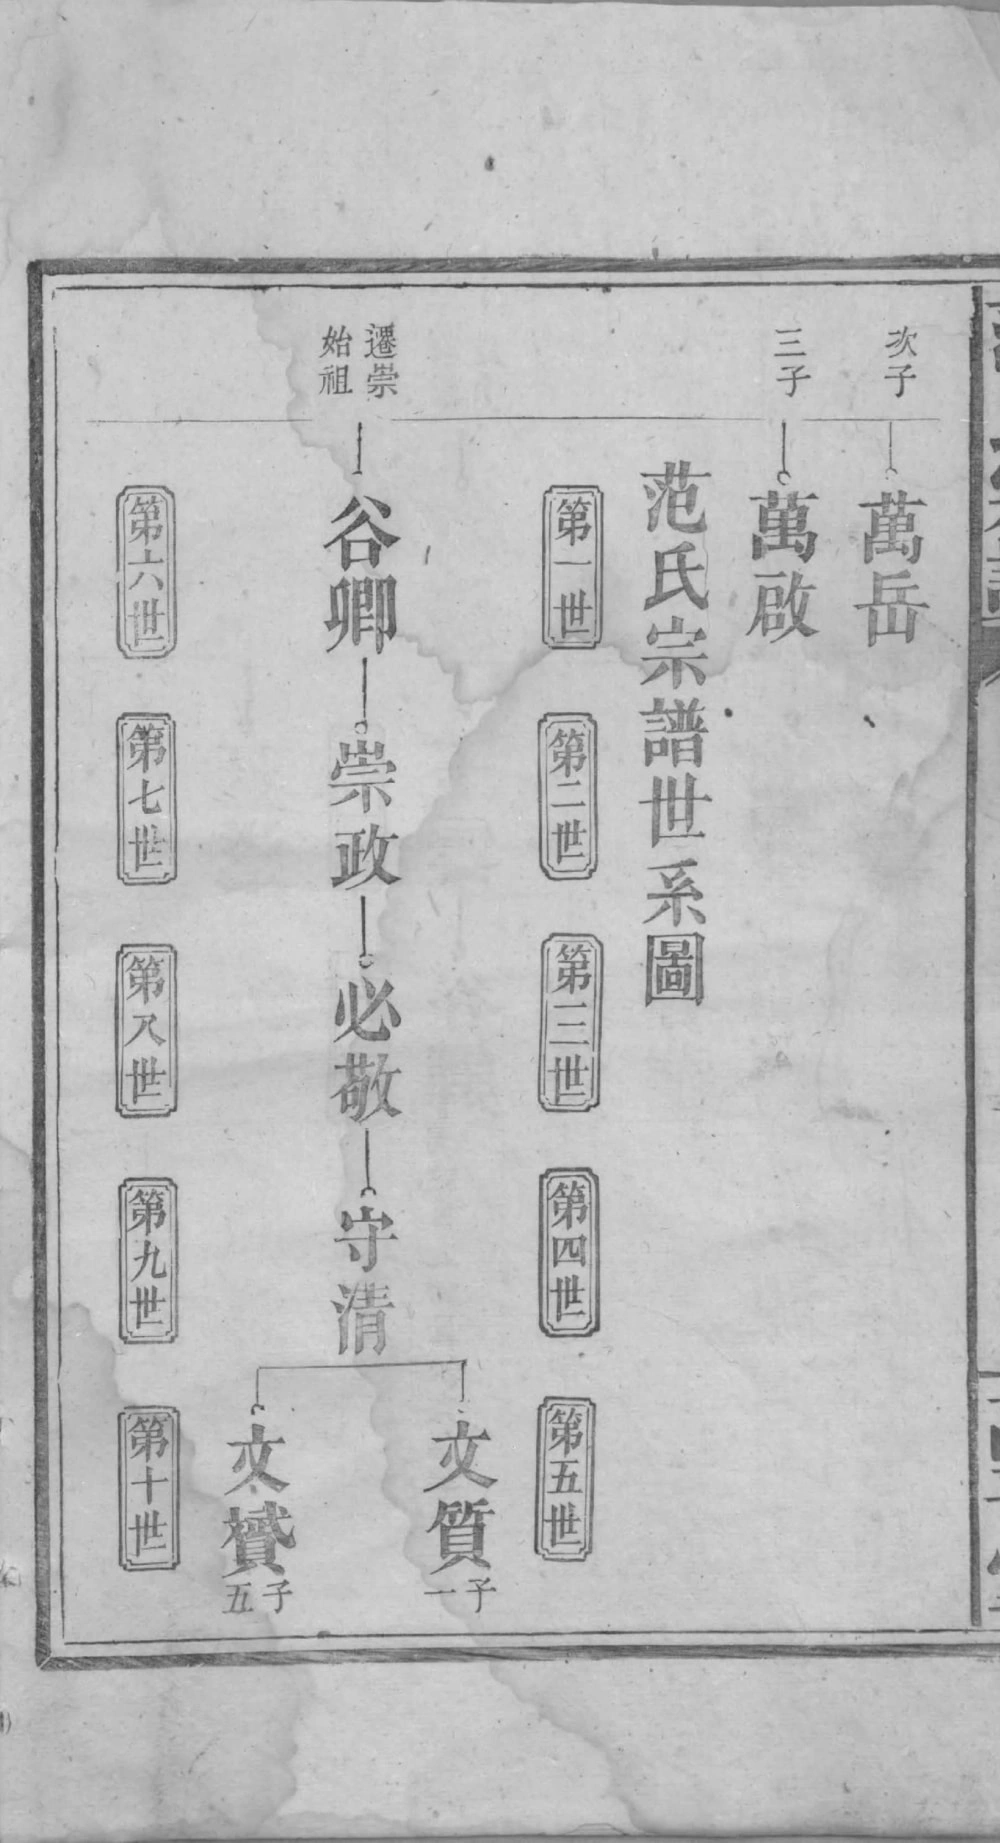 次子
萬岳
三子
萬啟
范氏宗譜世系圖
第一世
第二世
第三世
第四世
第五世
遷崇
始祖
谷卿
崇政
必敬
守清
文質
子一
文贇
子五
第六世
第七世
第八世
第九世
第十世